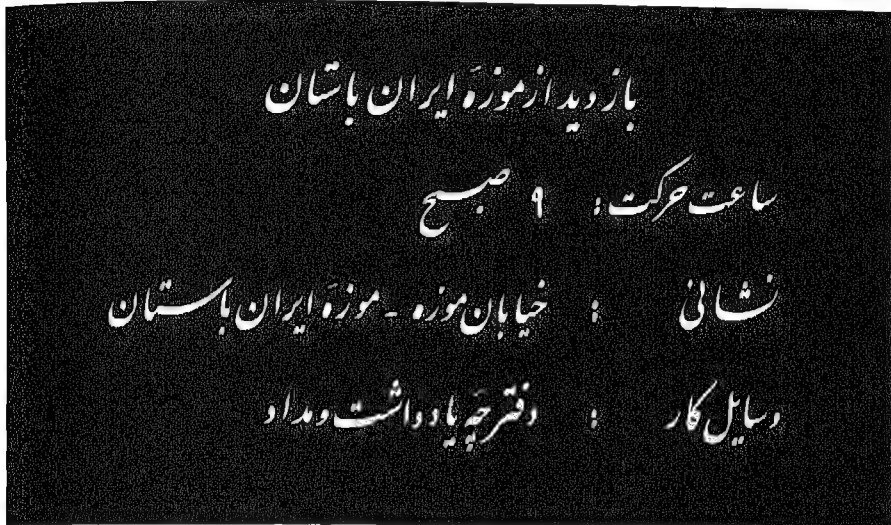 بازدید از موزهٔ ایران باستان
ساعت حرکت : ۹ صبح
نشانی : خیابان موزه - موزهٔ ایران باستان
وسایل کار : دفترچهٔ یادداشت و مداد